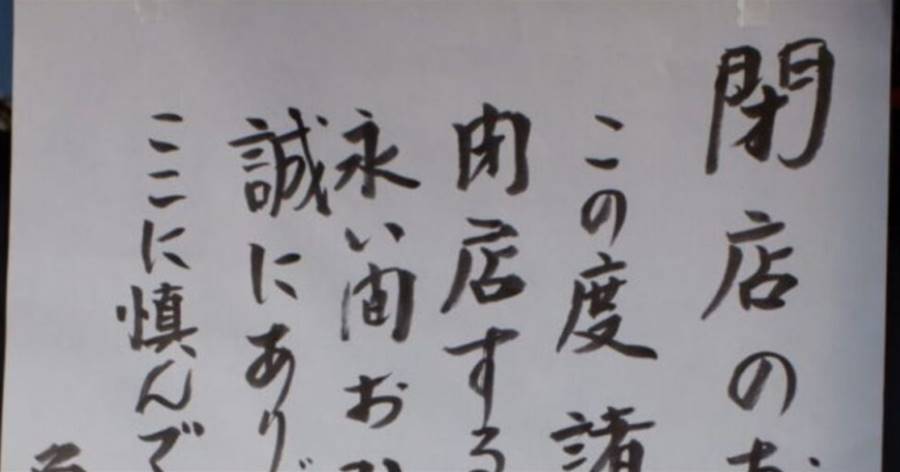 閉店のお
この度 諸
閉店する
永い間お
誠にあり
ここに慎んで